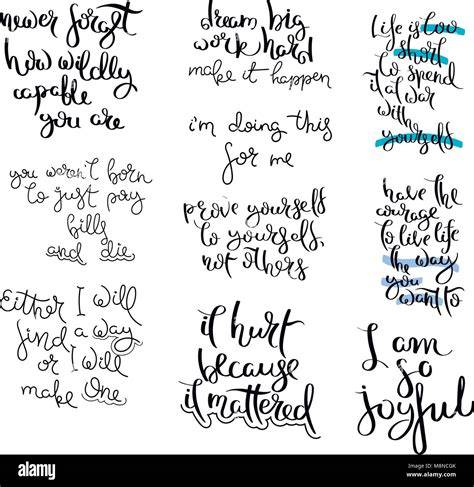 never forget
how wildly
capable
you are
you weren't born
to just pay
bills
and die
Either I will
find a way
or I will
make One
dream big
work hard
make it happen
i'm doing this
for me
prove yourself
to yourself
not others
it hurt
because
it mattered
Life is too
short
to spend
it at war
with
yourself
have the
courage
to live life
the way
you
want to
I am
so
joyful
alamy
Image ID: M8NCGK
www.alamy.com